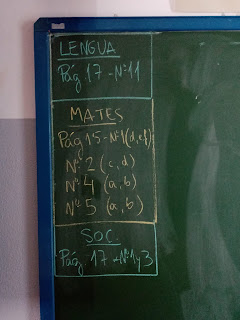 LENGUA
Pág 17 - Nº 11
MATES
Pág 15 - Nº 1 (d, e, f)
Nº 2 (c, d)
Nº 4 (a, b)
Nº 5 (a, b)
SOC.
Pág. 17 - Nº 1 y 3